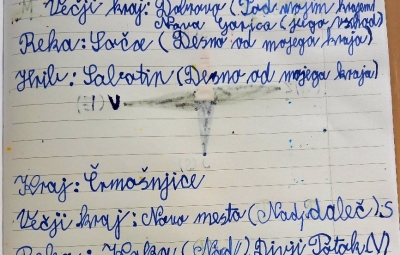 Večji kraj: Dolnova (Pod mojim krajem)
Nova Gorica (jugo vzhod)
Reka: Sača (Desno od mojega kraja)
Hrib: Sabotin (Desno od mojega kraja)
V
Kraj: Črmošnjice
Večji kraj: Novo mesto (Nad, daleč) S
Reka: (Nad) Divji Potok